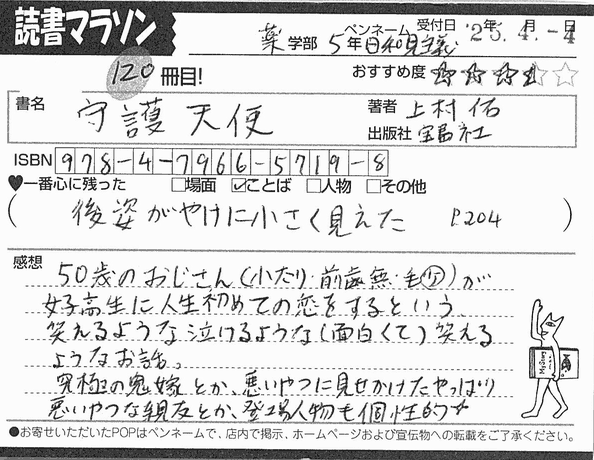 読書マラソン
受付日 '25年 4.月 -4日
薬 学部 5年 ペンネーム 日和見主義
120 冊目!
おすすめ度 ★★★☆☆
書名 守護天使
著者 上村佑
出版社 宝島社
ISBN 978-4-7966-5719-8
♥一番心に残った □場面 ☑ことば □人物 □その他
( 後姿がやけに小さく見えた P.204 )
感想
50歳のおじさん(小太り・前歯無・毛少)が
女子高生に人生初めての恋をするという、
笑えるような泣けるような(面白くて)笑える
ようなお話。
究極の鬼嫁とか、悪いやつに見せかけたやっぱり
悪いやつな親友とか、登場人物も個性的☆
●お寄せいただいたPOPはペンネームで、店内で掲示、ホームページおよび宣伝物への転載をご了承ください。